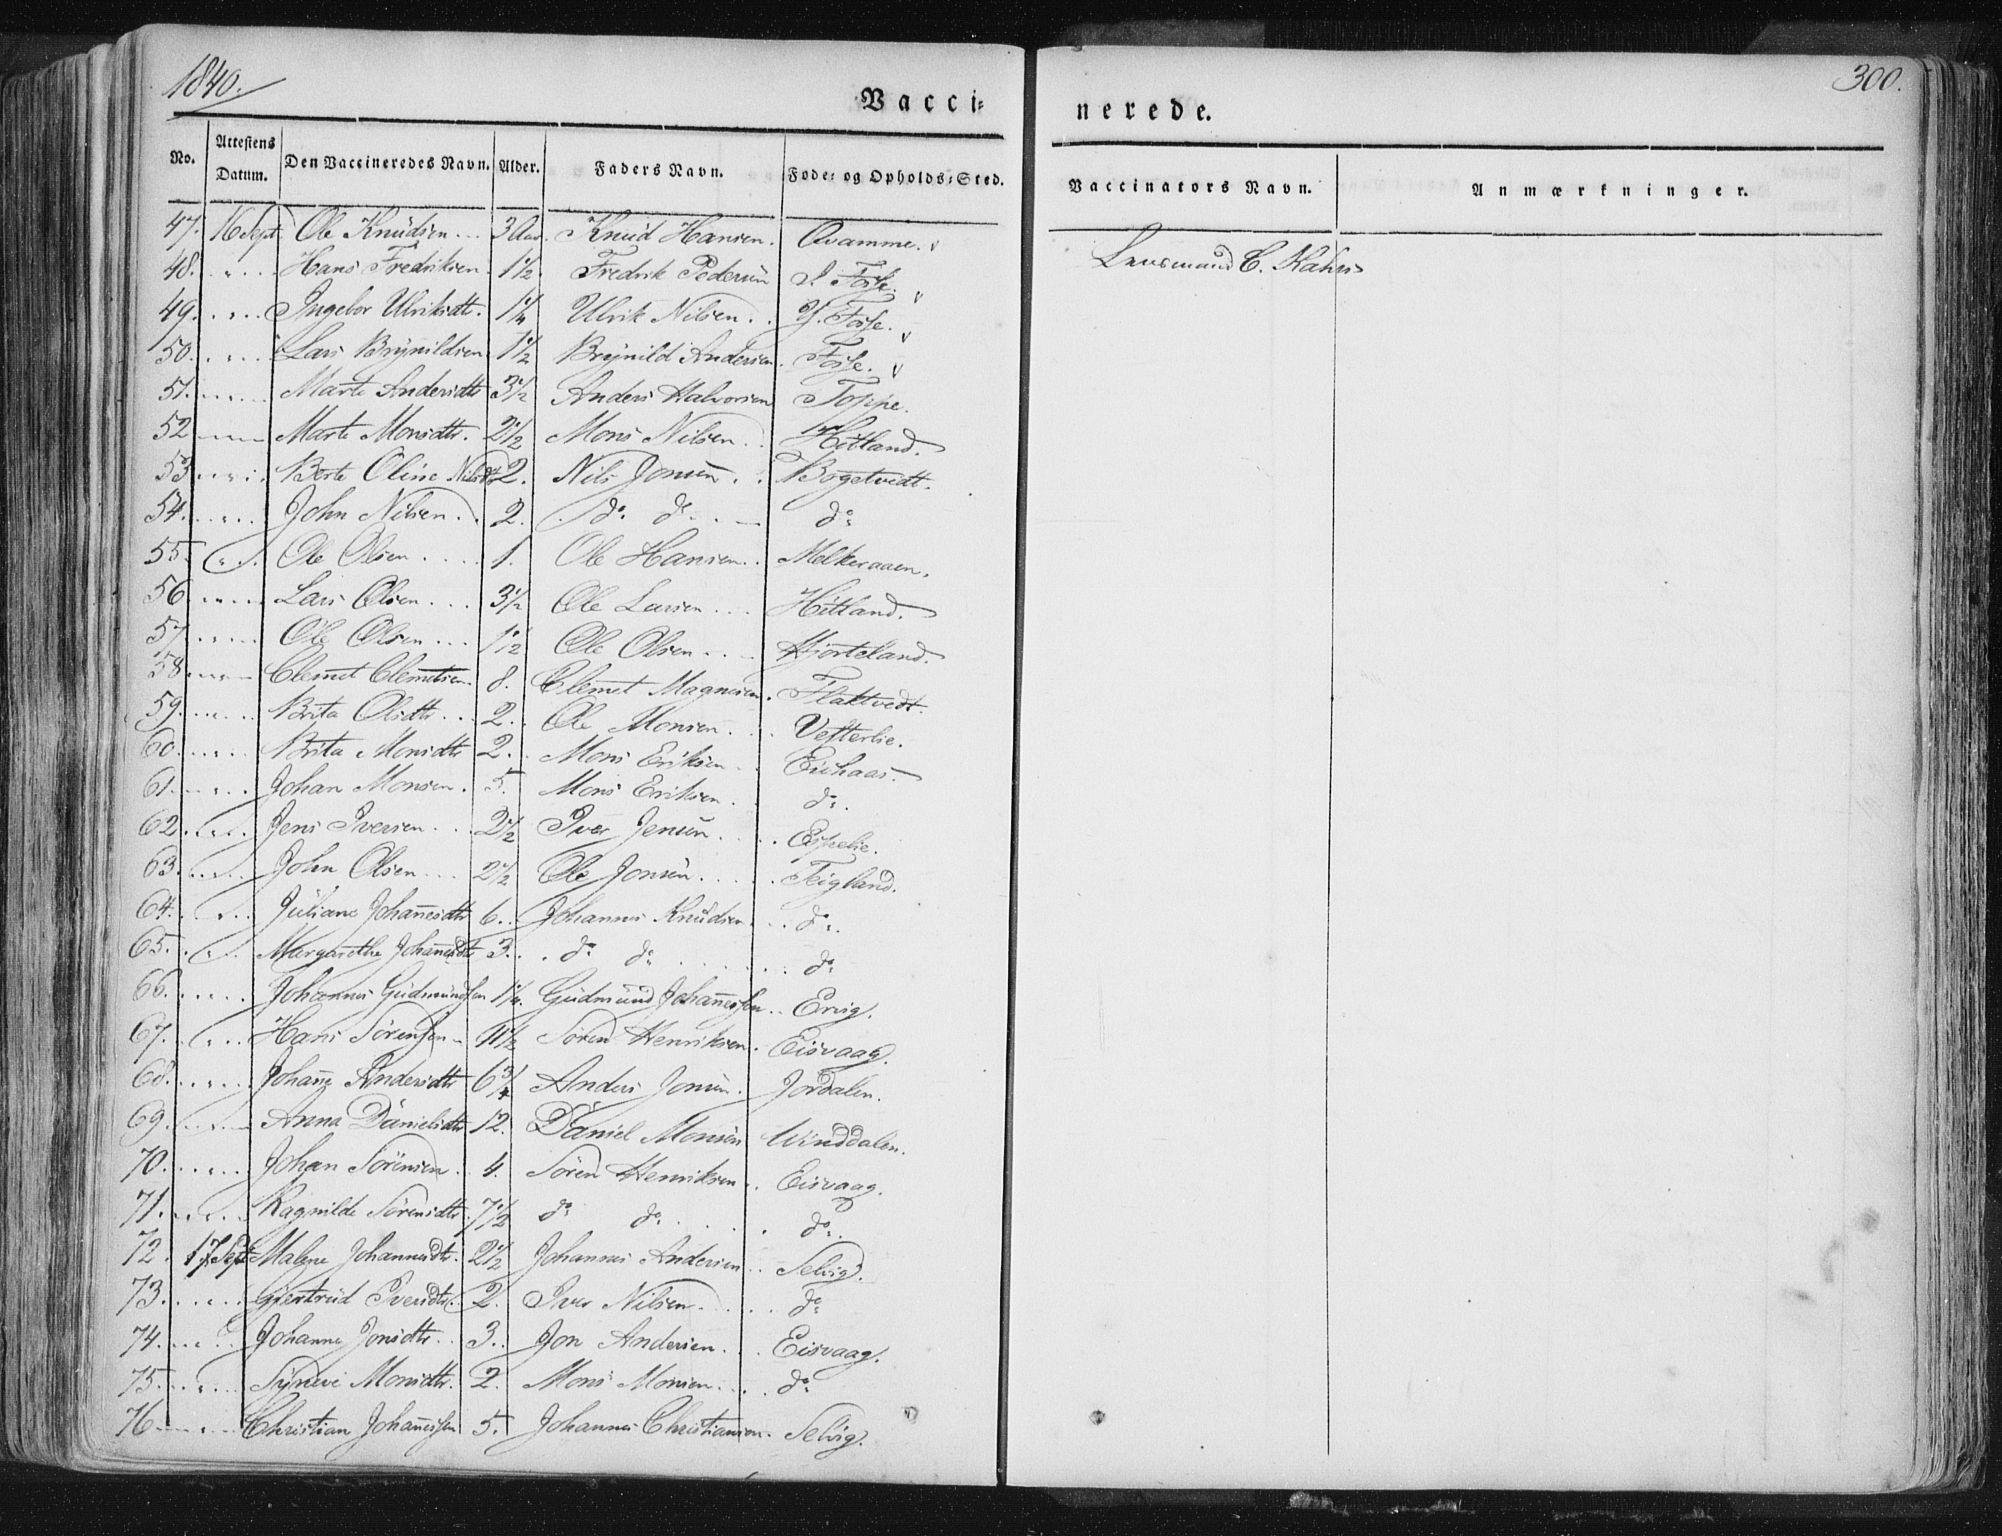 1840.
300.
Vacci-
nerede.
No. Attestens Datum. Den Vaccineredes Navn. Alder. Faders Navn. Føde- og Opholds-Sted.
Vaccinators Navn. Anmærkninger.
47. 16 Sept. Ole Knudsen 3 Aar. Knud Hansen. Qvamme.
Lensmand C.
48. Hans Fredriksen 1 1/2 Fredrik Pedersen Fosse.
49. Ingebor Ulriksdtr. 1 1/4 Ulrik Nilsen. Y. Fosse.
50. Lars Brynildsen 1 1/2 Brynild Andersen Fosse.
51. Marte Andersdtr 3 1/2 Anders Halvorsen Toppe.
52 Marte Monsdtr. 2 1/2 Mons Nilsen. Hitland.
53 Berte Oline Nilsdtr 2. Nils Jonsen. Bogetvedt.
54. John Nilsen. 2. do. do do
55. Ole Olsen 1. Ole Hansen. Melkeraaen.
56 Lars Olsen. 3 1/2 Ole Larsen Hitland.
57. Ole Olsen 1 1/2 Ole Olsen Hjorteland.
58. Clemet Clemetsen. 8. Clemet Magnesen. Flaktvedt.
59. Brita Olsdtr. 2. Ole Monsen. Vetterlie.
60. Brita Monsdtr 2. Mons Eriksen Eichaas.
61. Johan Monsen. 5. Mons Eriksen. do.
62. Jens Iversen. 2 1/2 Iver Jensen Espelie.
63. John Olsen 2 1/2 Ole Jonsen. Teigland.
64. Juliane Johannesdtr 6. Johannes Knudsen do.
65. Margarethe Johannesdtr 3. do do. do
66. Johannes Gudmundsen 1 1/4. Gudmund Johannessen
67. Hans Sørensen 11 1/2 Søren Henriksen. Eisvaag.
68. Johanne Andersdtr 6 3/4 Anders Jonsen. Jordalen.
69. Anna Danielsdtr 12. Daniel Monsen Winddalen.
70. Johan Sørensen. 4. Søren Henriksen Eisvaag.
71. Ragnilde Sørensdtr. 7 1/2 do do. do.
72. 17 Sept Malene Johannesdtr. 2 1/2 Johannes Andersen Selvig.
73. Gjertrud Iversdtr. 2. Iver Nilsen. do
74. Johanne Jonsdtr. 3. Jon Andersen. Eisvaag.
75. Synneve Monsdtr. 2. Mons Monsen. do
76 Christian Johannessen 5. Johannes Christiansen. Selvig.